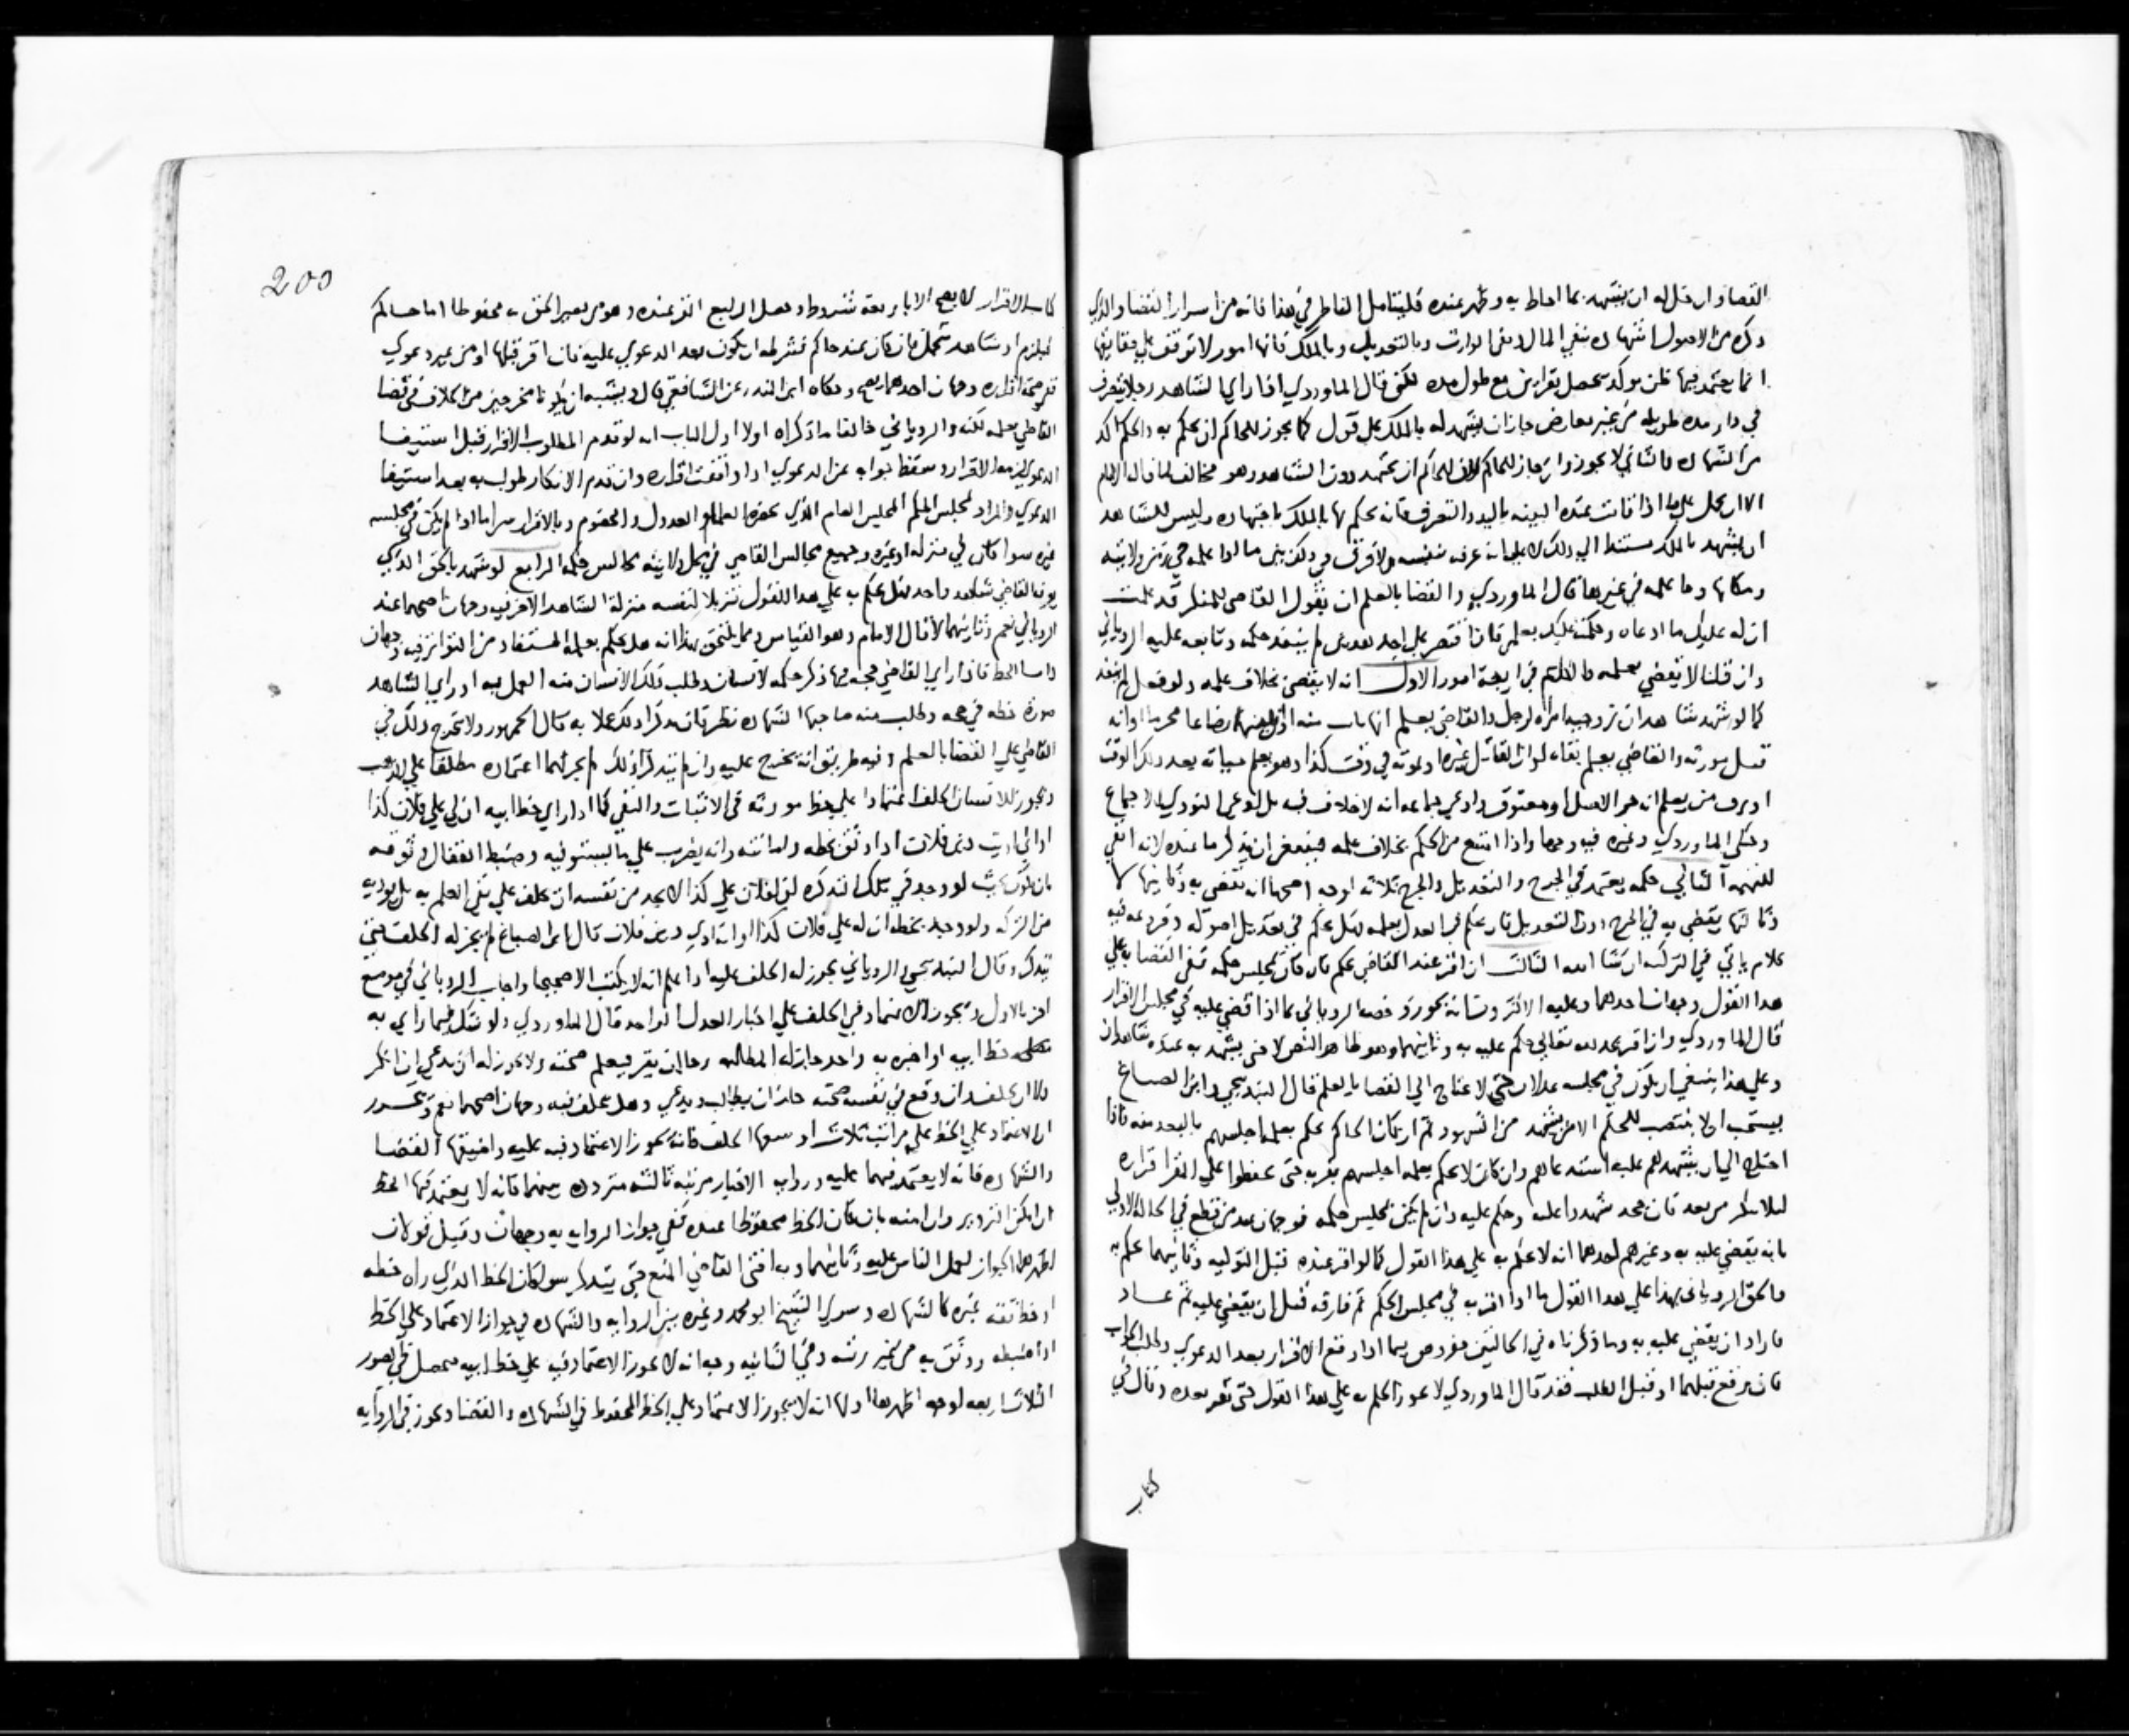 القضا وان قل له ان يشهد بما احاط به وظهر عنده فليتامل الناظر في هذا فانه من اسرار القضا والذي
ذكره من الاصول الشهاده بنفي المال ونفي الوارث وبالتعديل وبالملك فانها امور لا توقف على حقايقها
انما يعتمد فيها ظن موكد يحصل بقراين مع طول مده لكن قال الماوردي اذا راي الشاهد رجلا يتصرف
في دار مده طويله من غير معارض جاز ان يشهد له بالملك على قول كما يجوز للحاكم ان يحكم به والحكم اكد
من الشهاده والثاني لا يجوز وان جاز للحاكم لان للحاكم ان يجتهد دون الشاهد وهو مخالف لما قاله الامام
الا ان يحمل على ما اذا قامت عنده البينه باليد والتصرف فانه يحكم بالملك باجتهاده وليس للشاهد
ان يشهد بالملك مستندا الى ذلك لا على ما عرف بنفسه ولا فرق في ذلك بين ما اذا علمه في زمن ولايته
ومكانها وما علمه في غيرها قال الماوردي والقضا بالعلم ان يقول القاضي للمنكر قد علمت
ان له عليك ما ادعاه وحكمت عليك بعلمي فاذا اقتصر على احد هذين لم ينفذ حكمه وتابعه عليه الروياني
وان قلنا لا يقضي بعلمه فالكلام في اربعة امور الاول انه لا يقضي بخلاف علمه ولو فعل لم ينفذ
كما لو شهد شاهدان بزوجية امراه لرجل والقاضي يعلم انها بانت منه او ان بينهما رضاعا محرما او انه
قتل مورثه والقاضي يعلم بقاه او ان القاتل غيره او بموته في وقت كذا وهو يعلم حياته بعد ذلك الوقت
او برق من يعلم انه حر الاصل او معتوق وادعى جماعه انه لا خلاف فيه بل ادعى النووي الاجماع
وحكى الماوردي وغيره فيه وجها واذا امتنع من الحكم بخلاف علمه فينبغي ان يذكر ما عنده لانه انفى
للتهمه الثاني حكمه يعتمد في الجرح والتعديل والجرح ثلاثه اوجه اصحها انه يقضي به وثانيها لا
وثالثها يقضي به في الجرح دون التعديل فان حكم في العدل بعلمه فهل يحكم في تعديل اصوله وفروعه فيه
كلام ياتي في التزكيه ان شا الله الثالث ان اقر عند القاضي بحكم فان كان بمجلس حكمه ففي القضا به على
هذا القول وجهان احدهما وعليه الاكثر وشانه يجوز وخصه الروياني بما اذا قضى عليه في مجلس الاقرار
قال الماوردي وان اقر بعد لم يقال يحكم عليه به وثانيهما وهو ظاهر النص لا حتى يشهد به عنده شاهدان
وعلى هذا ينبغي ان يكون في مجلسه عدلان حتى لا يحتاج الى القضا بالعلم قال البندنيجي وابن الصباغ
يستحب ان لا ينتصب للحكم الا من يشهد من الشهود ثم ان كان الحاكم يحكم بعلمه اجلسهم بالبعد منه فاذا
احتاج الى ان يشهدهم عليه استدعاهم وان كان لا يحكم بعلمه اجلسهم بقربه حتى يحفظوا على المقر اقراره
ليلا ينكر من بعد فان جحد شهدوا عليه وحكم عليه وان لم يكن بمجلس حكمه فوجهان عند من قطع في الحاله الاولى
بانه يقضي عليه به وغيرهم احدهما انه لا يحكم به على هذا القول كما لو اقر عنده قبل التوليه وثانيهما يحكم به
والحق الروياني بهذا على هذا القول ما اذا اقر به في مجلس الحكم ثم فارقه قبل ان يقضي عليه ثم عاد
فاراد ان يقضي عليه به وما ذكرناه في الحالتين مفروض فيما اذا وقع الاقرار بعد الدعوى وطلب الجواب
فان وقع قبلهما او قبل الطلب فقد قال الماوردي لا يجوز الحكم به على هذا القول حتى يقر بعده وقال في
كتاب
200
كتاب الاقرار لا يصح الا باربعة شروط
فيلزم او شاهد متحمل فان كان عند حاكم فشرطه ان يكون بعد الدعوى عليه فان اقر قبلها او من غير دعوى
ففي صحة اقراره وجهان احدهما يصح وحكاه ابن المنذر عن الشافعي قال ويشبه ان يكونا مخرجين من الخلاف في قضا
القاضي بعلمه لكنه والروياني خالفا ما ذكراه اولا اول الباب انه لو تقدم المطلوب بالاقرار قبل استيفا
الدعوى لزمه الاقرار وسقط جوابه عن الدعوى اذا وافقت اقراره وان تقدم الانكار طولب به بعد استيفا
الدعوى والمراد بمجلس الحكم المجلس العام الذي يحضره العلما والعدول والخصوم وبالاقرار سرا ما اذا لم يكن في مجلسه
غيره سوا كان في منزله او غيره وجميع مجالس القاضي في محل ولايته مجالس حكمه الرابع لو شهد بالحق الذي
يعرفه القاضي شاهد واحد فهل يحكم به على هذا القول تنزيلا لنفسه منزلة الشاهد الاخر فيه وجهان اصحهما عند
الروياني نعم وثانيهما لا قال الامام وهو القياس ومما يلتحق بهذا انه هل يحكم بعلمه المستفاد من التواتر فيه وجهان
واما الخط فاذا راى القاضي حجه فيها ذكر حكمه لانسان وطلب ذلك الانسان منه العمل به او راى الشاهد
صورة خطه في حجه وطلب منه صاحبها الشهاده نظر فان تذكرا ذلك عملا به قال الجمهور ولا تخرج ذلك في
القاضي على القضا بالعلم وفيه طريق انه يخرج عليه وان لم يتذكرا ذلك لم يجز لهما اعتماده مطلقا على المذهب
ويجوز للانسان الحلف اعتمادا على خط مورثه في الاثبات والنفي كما اذا راى خط ابيه ان لي على فلان كذا
او اني اديت دين فلان اذا وثق بخطه وامانته وانه يضرب على ما يستوفيه وضبط القفال وثوقه
بان يكون بحيث لو وجد في تلك التذكره لفلان علي كذا لا يجد من نفسه ان يحلف على نفي العلم به بل يوديه
من التركه ولو وجد بخطه ان له على فلان كذا او انه ادى دين فلان قال ابن الصباغ لم يجز له الحلف حتى
يتذكر وقال البندنيجي والروياني يجوز له الحلف عليه اذا علم انه لا يكتب الا صحيحا واجاب الروياني في موضع
اخر بالاول ويجوز الاعتماد في الحلف على اخبار العدل الواحد قال الماوردي ولو شك فيما راى به
خط ابيه او اخبره به واحد جاز له المطالبه وجاز ان يقر فيعلم صحته ولا يجوز له ان يدعي ان انكر
ولا ان يحلف وان وقع في نفسه صحته جاز ان يطالب ويدعي وهل يحلف فيه وجهان اصحهما نعم وتحرر
ان الاعتماد على الخط على مراتب ثلاث اوسعها الحلف فانه يجوز الاعتماد فيه عليه واضيقها القضا
والشهاده فانه لا يعتمد فيهما عليه وروايه الاخبار مرتبه ثالثه متردده بينهما فانه لا يعتمد فيها الخط
ان امكن التزوير وان امنه بان كان الخط محفوظا عنده ففي جواز الروايه به وجهان وقيل قولان
اظهرهما الجواز لعمل الناس عليه وثانيهما وبه افتى القاضي المنع حتى يتذكر سوا كان الخط الذي راه خطه
او خط ثقه غيره كالشهاده وسوى الشيخ ابو محمد وغيره بين الروايه والشهاده في جواز الاعتماد على الخط
اذا ضبطه ووثق به من غير ريبه وفي الثانيه وجه انه لا يجوز الاعتماد فيه على خط ابيه فحصل في الصور
الثلاث اربعه اوجه اظهرها اولها انه لا يجوز الاعتماد على الخط المحفوظ في الشهاده والقضا ويجوز في الروايه